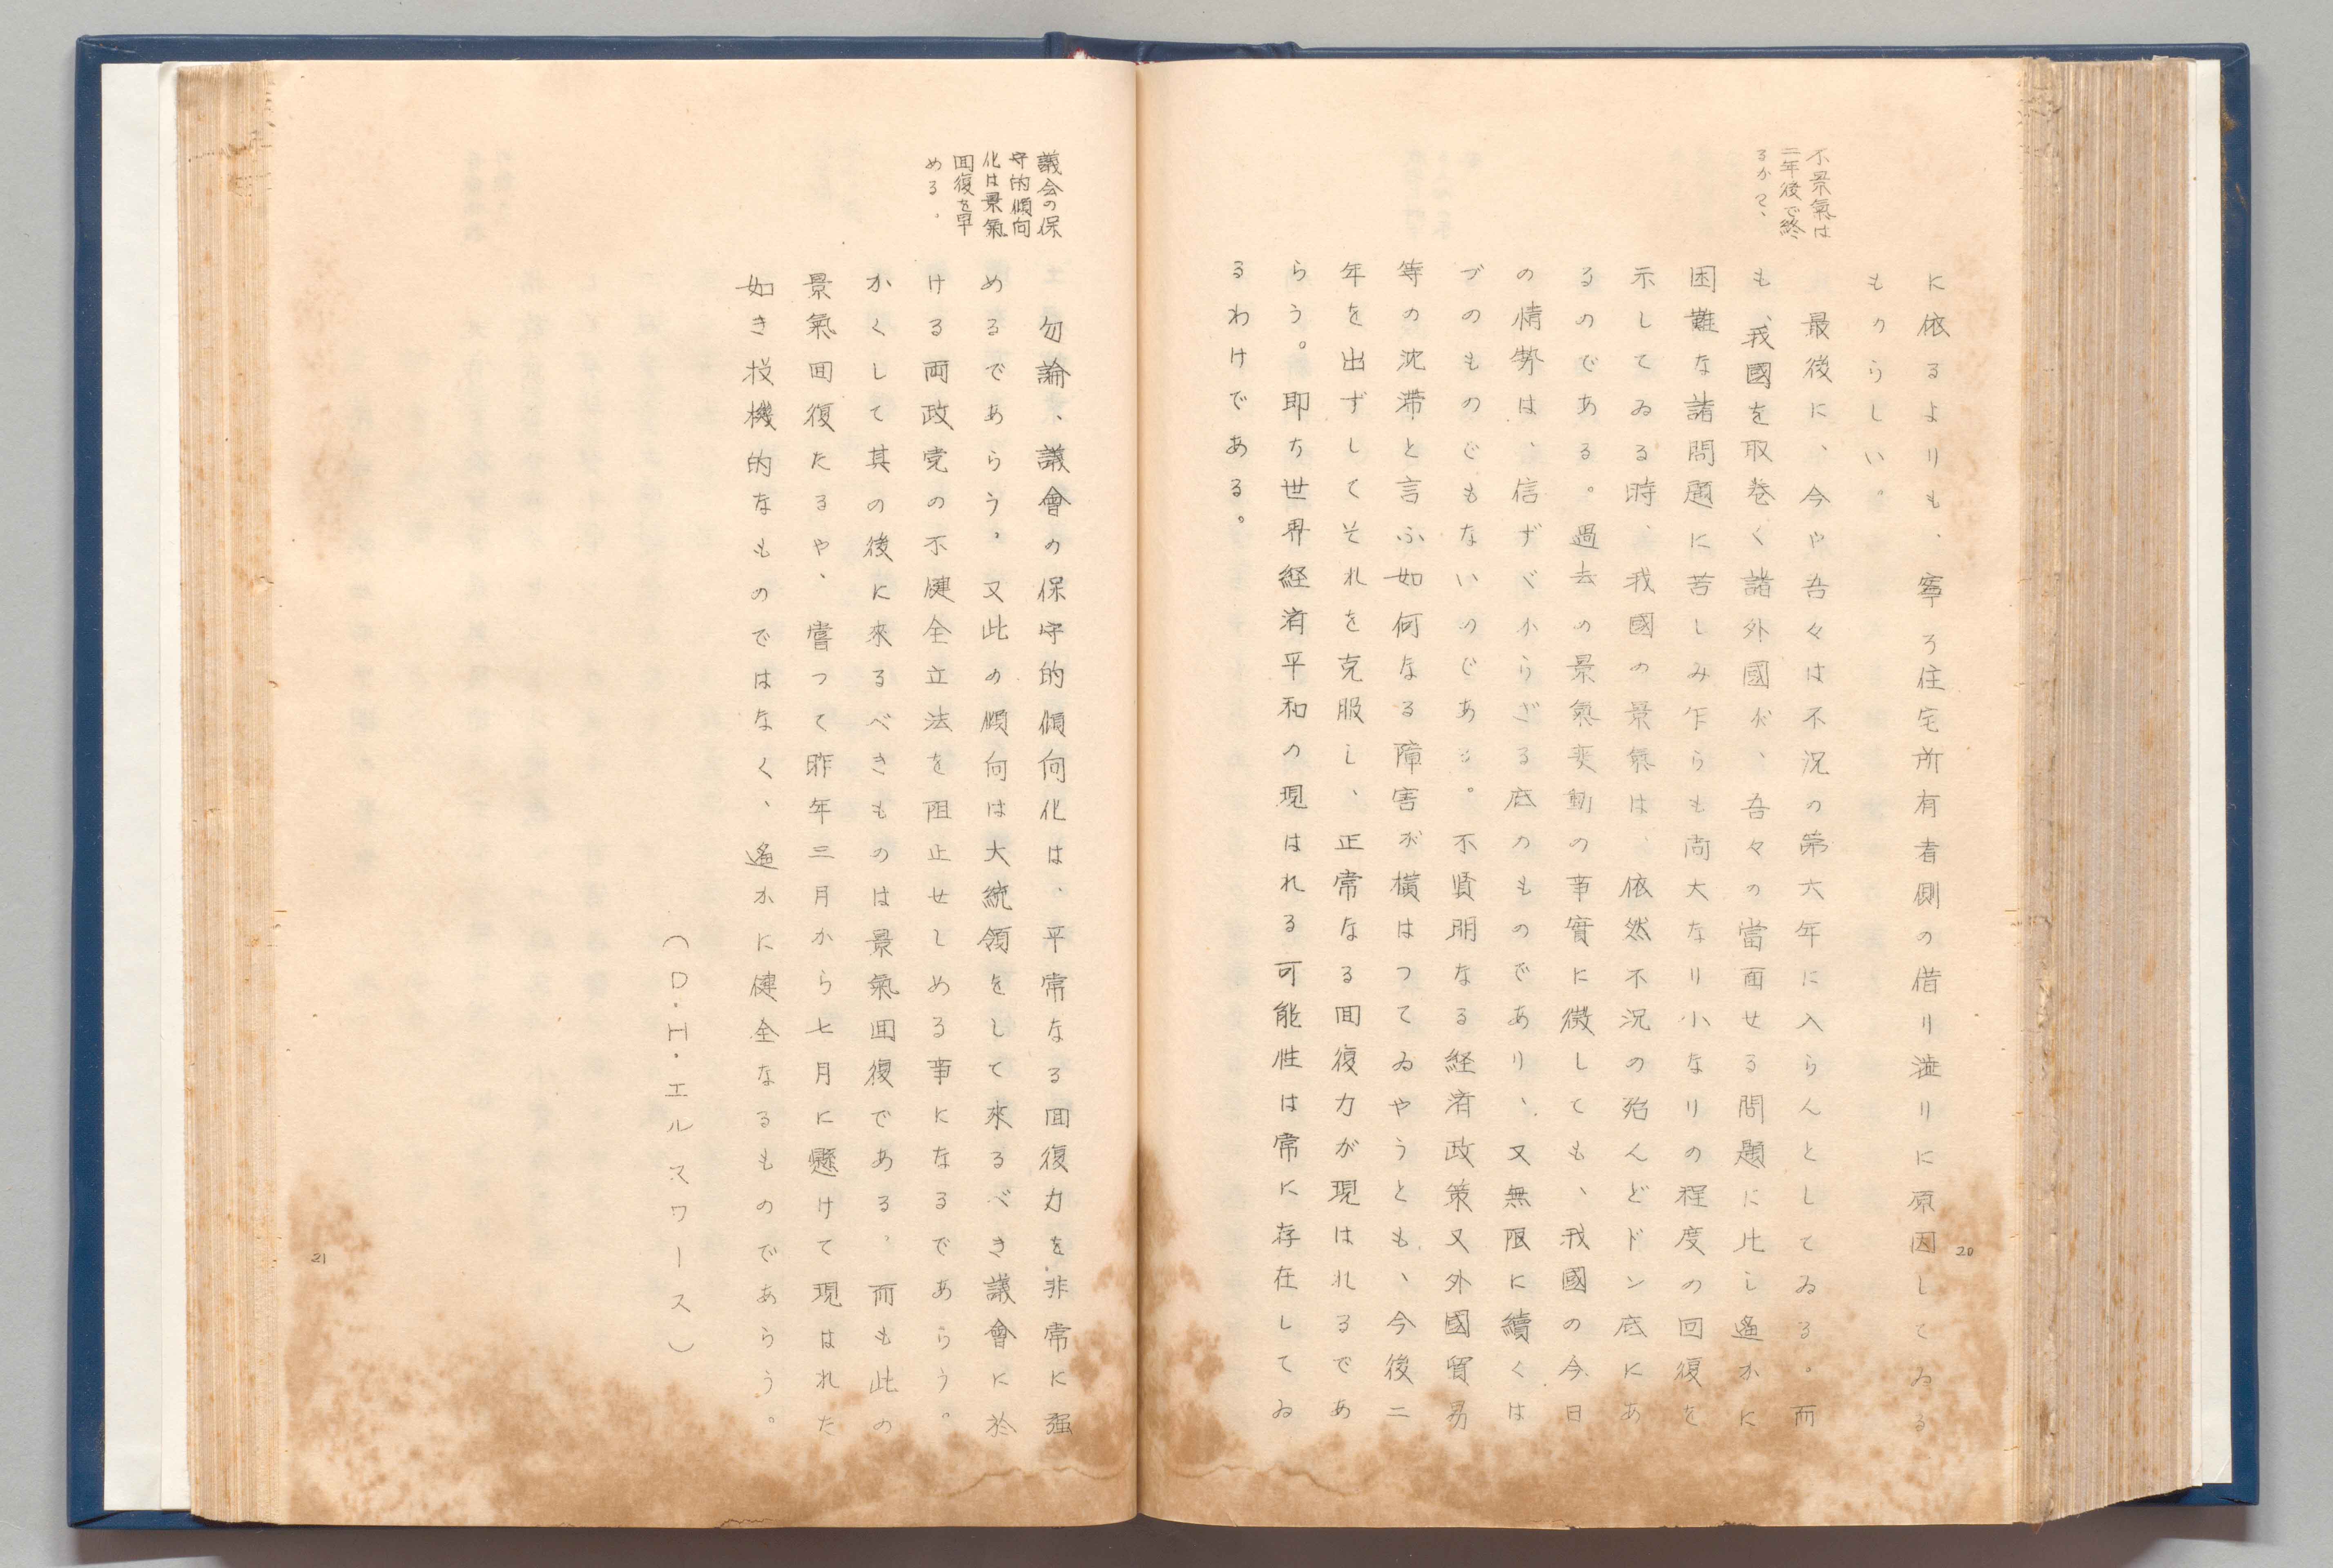 に依るよりも、寧ろ住宅所有者側の借り澁りに原因してゐる
ものらしい。
不景氣は
二年後で終
るか？、
最後に、今や吾々は不況の第六年に入らんとしてゐる。而
も、我國を取巻く諸外國が、吾々の當面せる問題に比し遙かに
困難な諸問題に苦しみ乍らも尚大なり小なりの程度の回復を
示してゐる時、我國の景氣は、依然不況の殆んどドン底にあ
るのである。過去の景氣変動の事實に微しても、我國の今日
の情勢は、信ずべからざる底のものであり、又無限に續くは
づのものでもないのである。不賢明なる経済政策又外國貿易
等の沈滞と言ふ如何なる障害が横はつてゐやうとも、今後二
年を出ずしてそれを克服し、正常なる回復力が現はれるであ
らう。即ち世界経済平和の現はれる可能性は常に存在してゐ
るわけである。
20
議会の保
守的傾向
化は景氣
回復を早
める。
勿論、議會の保守的傾向化は、平常なる回復力を非常に强
めるであらう。又此の傾向は大統領をして來るべき議會に於
ける両政党の不健全立法を阻止せしめる事になるであらう。
かくして其の後に來るべきものは景氣回復である。而も此の
景氣回復たるや、嘗つて昨年三月から七月に懸けて現はれた
如き投機的なものではなく、遙かに健全なるものであらう。
（D・H・エルスワース）
21